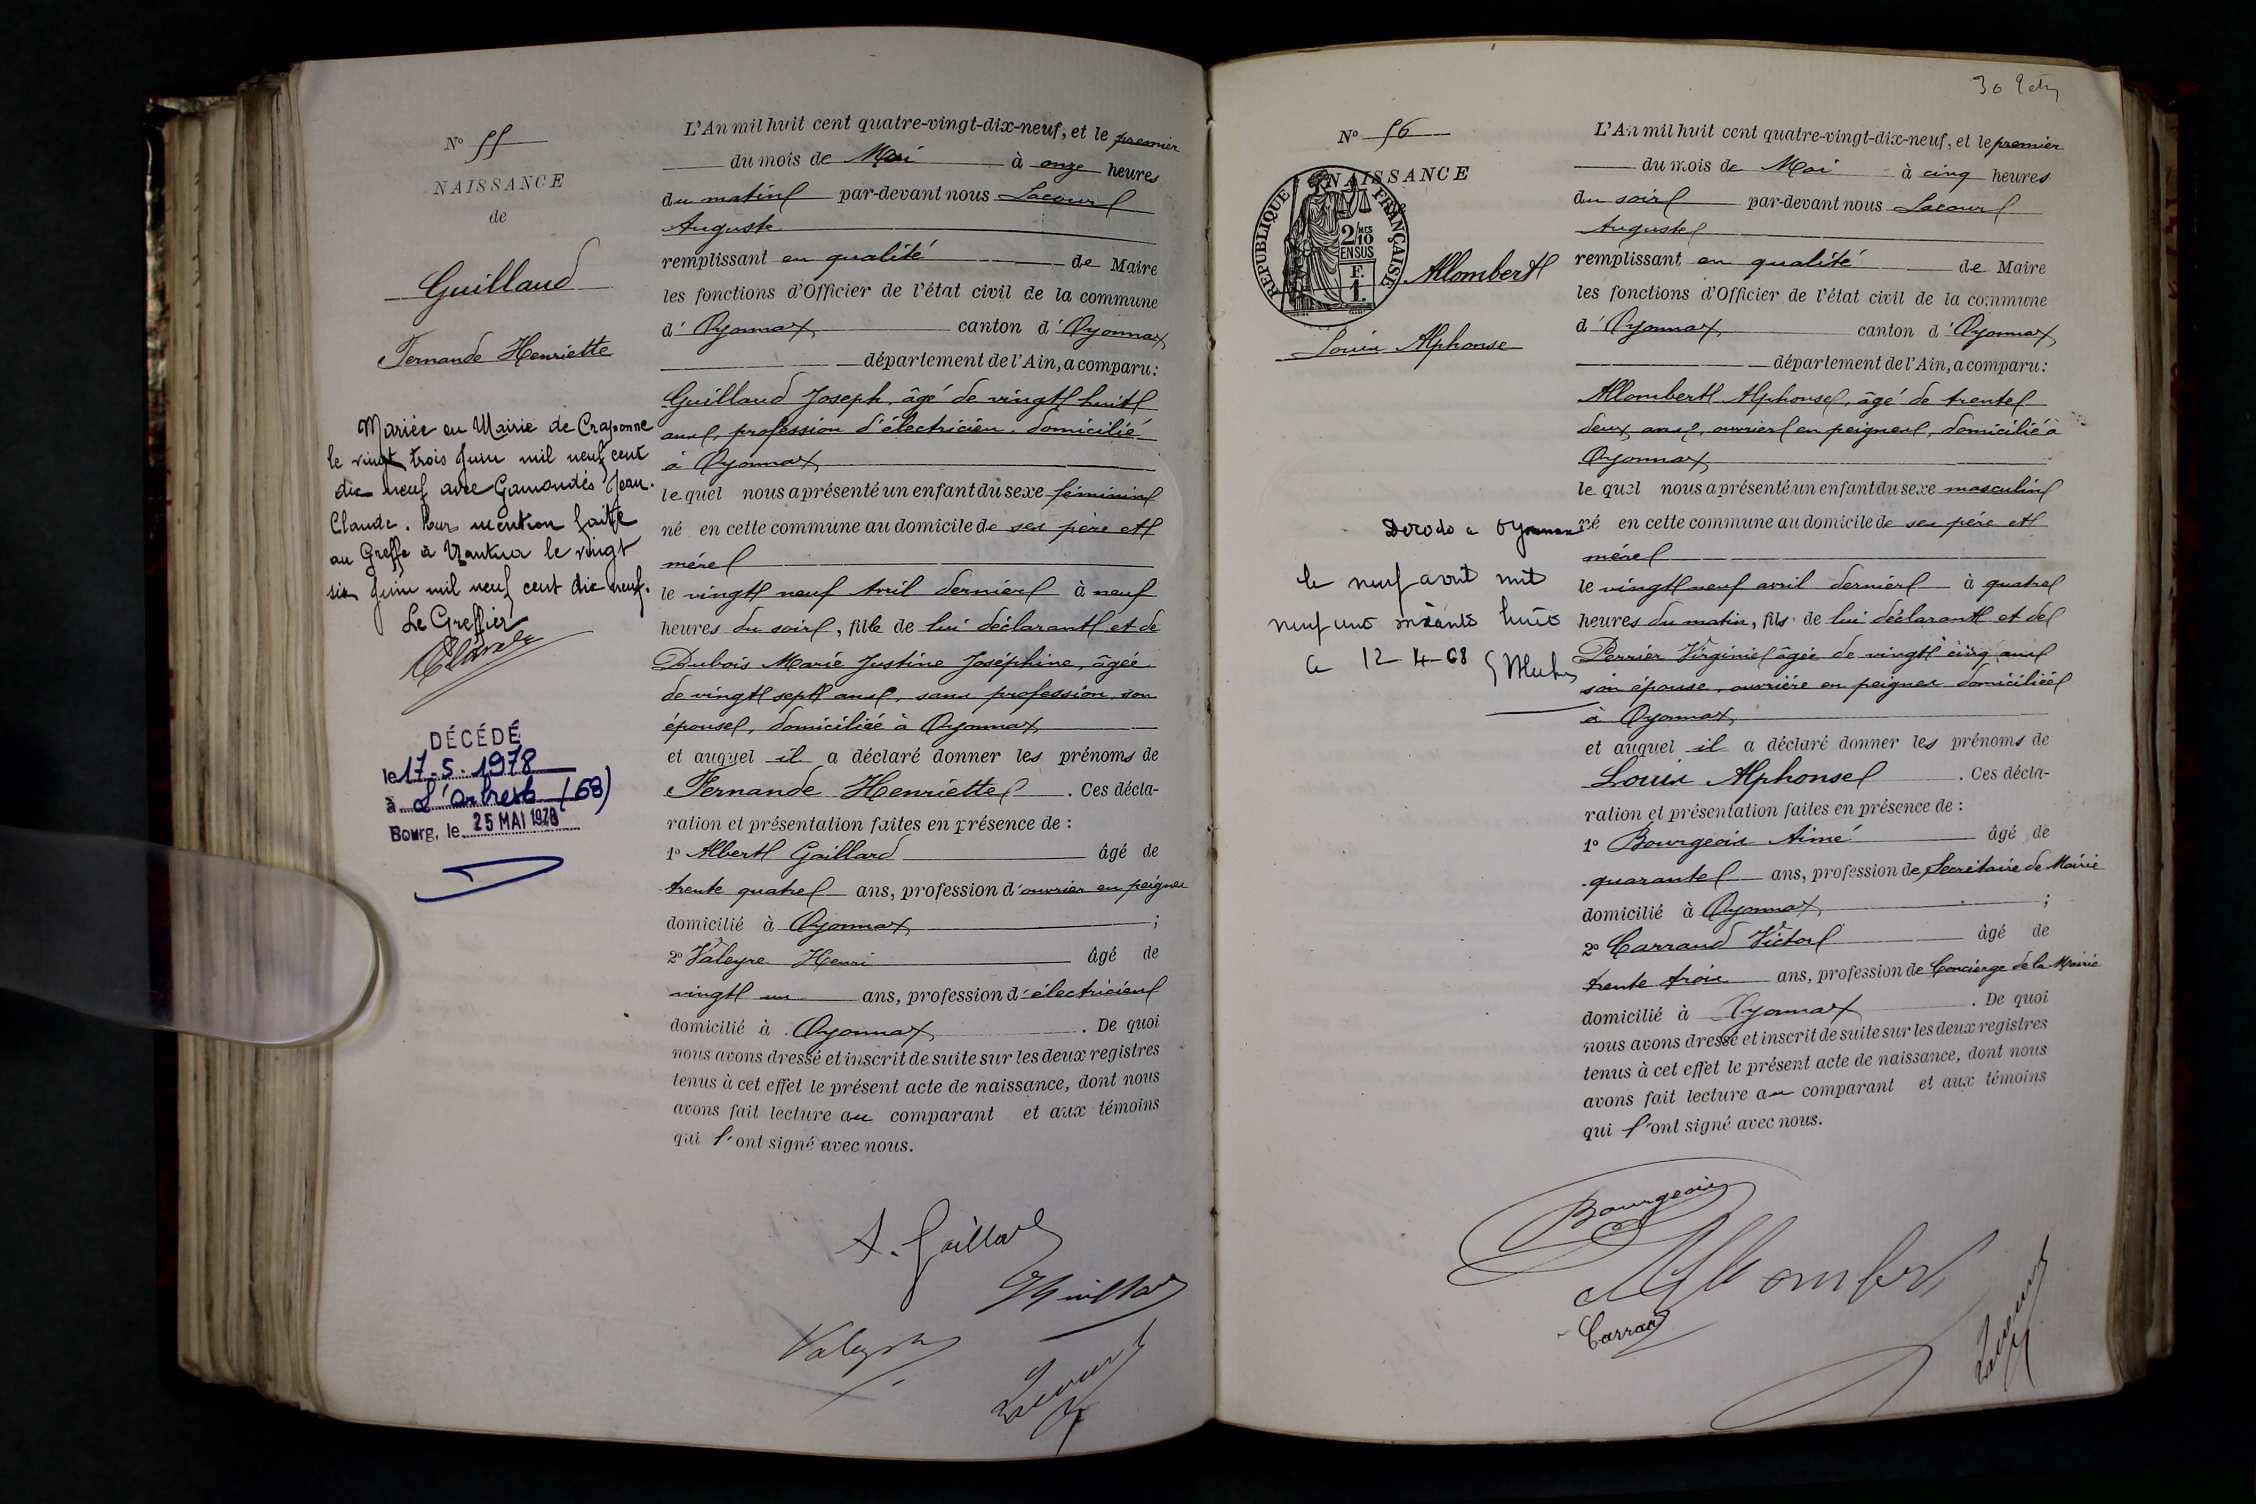 Nº 55
NAISSANCE
de
Guillaud
Fernande Henriette
Mariée en Mairie de Craponne
le vingt trois Juin mil neuf cent
dix neuf avec Gamondés Jean-
Claude. Pour mention faite
au Greffe à Nantua le vingt
six Juin mil neuf cent dix neuf.
Le Greffier
DÉCÉDÉ
le 17-5-1978
à L'arbresle (69)
Bourg, le 25 MAI 1978
L'An mil huit cent quatre-vingt-dix-neuf, et le premier
du mois de Mai à onze heures
du matin par-devant nous Lacour
Auguste
remplissant en qualité de Maire
les fonctions d'Officier de l'état civil de la commune
d'Oyonnax canton d'Oyonnax
département de l'Ain, a comparu:
Guillaud Joseph, âgé de vingt huit
ans, profession d'électricien, domicilié
à Oyonnax
lequel nous a présenté un enfant du sexe féminin
né en cette commune au domicile de ses père et
mère
le vingt neuf Avril dernier à neuf
heures du soir, fille de lui déclarant et de
Dubois Marie Justine Joséphine, âgée
de vingt sept ans, sans profession, son
épouse, domiciliée à Oyonnax
et auquel il a déclaré donner les prénoms de
Fernande Henriette. Ces décla-
ration et présentation faites en présence de :
1º Albert Gaillard âgé de
trente quatre ans, profession d'ouvrier en peignes
domicilié à Oyonnax ;
2º Valeyre Henri âgé de
vingt un ans, profession d'électricien
domicilié à Oyonnax. De quoi
nous avons dressé et inscrit de suite sur les deux registres
tenus à cet effet le présent acte de naissance, dont nous
avons fait lecture au comparant et aux témoins
qui l'ont signé avec nous.
A. Gaillard
Guillaud
Valeyre
Lacour
Nº 56
NAISSANCE
RÉPUBLIQUE FRANÇAISE
2/10
EN SUS
F.
1.
Allombert
Louis Alphonse
Décédé à Oyonnax
le neuf avril mil
neuf cent soixante huit
Le 12-4-68
L'An mil huit cent quatre-vingt-dix-neuf, et le premier
du mois de Mai à cinq heures
du soir par-devant nous Lacour
Auguste
remplissant en qualité de Maire
les fonctions d'Officier de l'état civil de la commune
d'Oyonnax canton d'Oyonnax
département de l'Ain, a comparu:
Allombert Alphonse, âgé de trente
deux ans, ouvrier en peignes, domicilié à
Oyonnax
lequel nous a présenté un enfant du sexe masculin
né en cette commune au domicile de ses père et
mère
le vingt neuf avril dernier à quatre
heures du matin, fils de lui déclarant et de
Perrier Virginie âgée de vingt cinq ans
son épouse, ouvrière en peignes domiciliée
à Oyonnax
et auquel il a déclaré donner les prénoms de
Louis Alphonse. Ces décla-
ration et présentation faites en présence de :
1º Bourgeois Aimé âgé de
quarante ans, profession de Secrétaire de Mairie
domicilié à Oyonnax ;
2º Carraud Victor âgé de
trente trois ans, profession de Concierge de la Mairie
domicilié à Oyonnax. De quoi
nous avons dressé et inscrit de suite sur les deux registres
tenus à cet effet le présent acte de naissance, dont nous
avons fait lecture au comparant et aux témoins
qui l'ont signé avec nous.
Bourgeois
Allombert
Carraud
Lacour